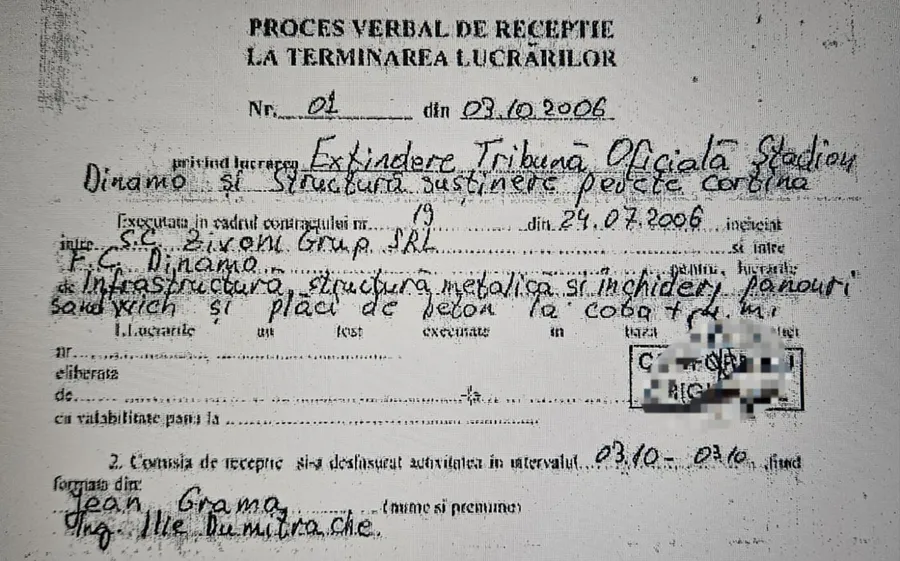 PROCES VERBAL DE RECEPTIE
LA TERMINAREA LUCRĂRILOR
Nr. 01 din 03.10.2006
privind lucrarea Extindere Tribună Oficială Stadion
Dinamo și structură susținere perete cortina
Executata in cadrul contractului nr. 19 din 24.07.2006 incheiat
intre S.C. Zivoni Grup SRL si intre
F.C. Dinamo pentru lucrarile
de Infrastructură, structură metalică si inchideri panouri
sandwich și plăci de beton la cota
1. Lucrarile au fost executate in baza
nr.
eliberata
de
cu valabilitate pana la
2. Comisia de receptie si-a desfasurat activitatea in intervalul 03.10 - 03.10. fiind
formata din:
Jean Grama (nume si prenume)
Ing. Ilie Dumitrache.